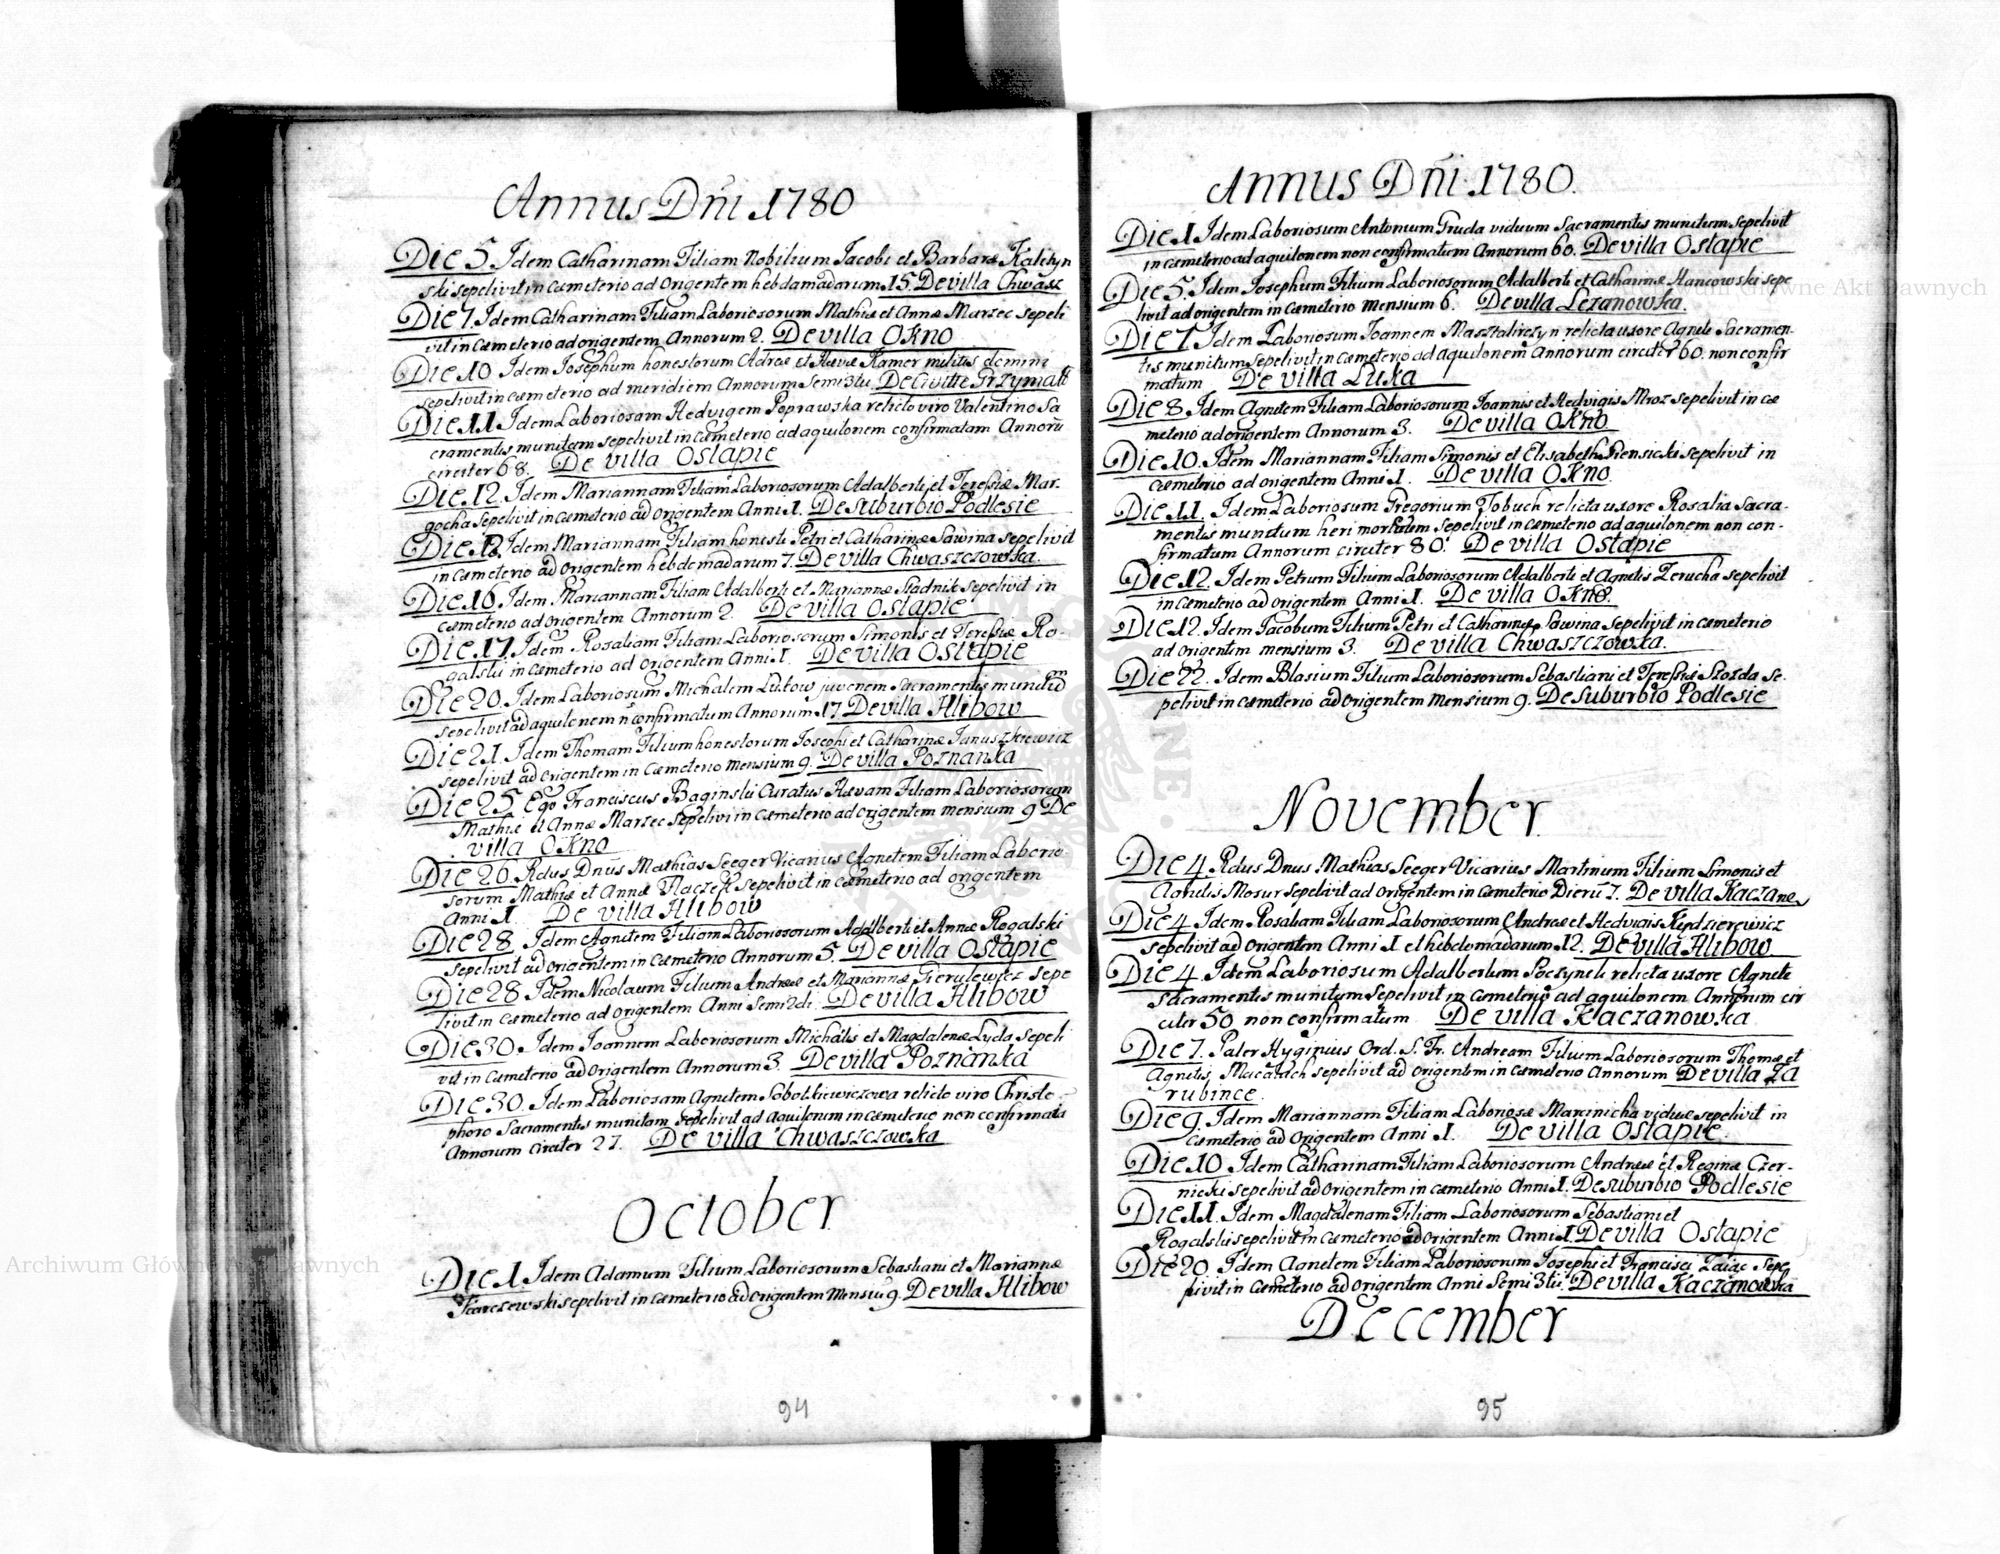 Annus Dñi 1780
Die 5. Idem Catharinam Filiam Nobilium Jacobi et Barbaræ Kalityn
ski sepelivit in Cæmeterio ad Origentem hebdamadarum 15. De villa Chwasz
Die 7. Idem Catharinam Filiam Laboriosorum Mathiæ et Annæ Marzec sepeli
vit in Cæmeterio ad origentem Annorum 2. De villa Okno
Die 10 Idem Josephum honestorum Adræ et Hævæ Kramer militis domini
sepelivit in cæmeterio ad meridiem Annorum Semi 3tii. De Civitte Grzymałł
Die 11 Idem Laboriosam Hedvigem Poprawska relicto viro Valentino Sa
cramentis munitam sepelivit in Cæmeterio ad aquilonem confirmatam Annorū
circiter 68. De villa Ostapie
Die 12. Idem Mariannam Filiam Laboriosorum Adalberti et Teresiæ Mar-
gocha sepelivit in Cæmeterio ad Origentem Anni 1. De Suburbio Podlesie
Die 13. Idem Mariannam Filiam honesti Petri et Catharinæ Sawina sepelivit
in Cæmeterio ad Origentem hebdemadarum 7. De villa Chwaszczowka.
Die 16. Idem Mariannam Filiam Adalberti et Mariannæ Stadnik sepelivit in
cæmeterio ad Origentem Annorum 2. De villa Ostapie
Die 17. Idem Rosaliam Filiam Laboriosorum Simonis et Teresiæ Ro-
galski in Cæmeterio ad Origentem Anni 1. De villa Ostapie
Die 20. Idem Laboriosum Michalem Lukow juvenem Sacramentis munitū
sepelivit ad aquilonem n confirmatum Annorum 17 De villa Hlibow
Die 21. Idem Thomam Filium honestorum Josephi et Catharinæ Januszkiewicz
sepelivit ad origentem in Cæmeterio mensium 9. De villa Poznanka
Die 25 Ego Franciscus Baginski Curatus Hævam Filiam Laboriosorum
Mathiæ et Annæ Marzec sepelivi in cæmeterio ad origentem mensium 9 De
villa Okno
Die 26. Rdus Dnūs Mathias Seeger Vicarius Agnetem Filiam Laborio-
sorum Mathiæ et Annæ Tkaczek sepelivit in cæmeterio ad origentem
Anni 1. De villa Hlibow
Die 28. Idem Agnetem Filiam Laboriosorum Adalberti et Annæ Rogalski
sepelivit ad Origentem in Cæmeterio Annorum 5. De villa Ostapie
Die 28 Idem Nicolaum Filium Andreæ et Mariannæ sepe
livit in Cæmeterio ad Origentem Anni Semi 2di. De villa Hlibow
Die 30. Idem Joannem Laboriosorum Michælis et Magdalenæ Lyda sepeli
vit in Cæmeterio ad Origentem Annorum 3. De villa Poznanka
Die 30. Idem Laboriosam Agnetem Sobotkiewiczowa relicto viro Christo
phoro Sacramentis munitam sepelivit ad Aquilonem in cæmeterio non confirmatā
Annorum circiter 27. De villa Chwaszczowka
October
Die 1. Idem Adamum Filium Laboriosorum Sebastiani et Mariannæ
Skarczewski sepelivit in cæmeterio ad Origentem Mensiu 9. De villa Hlibow
94
Annus Dñi. 1780.
Die 1 Idem Laboriosum Antonium Gruda viduum Sacramentis munitum sepelivit
in cæmeterio ad aquilonem non confirmatum Annorum 60. De villa Ostapie
Die 5. Idem Josephum Filium Laboriosorum Adalberti et Catharinæ Hancowski sepe
livit ad origentem in Cæmeterio Mensium 6. De villa Lezanowka.
Die 7 Idem Laboriosum Joannem Masztalirczyn relicta uxore Agnete Sacramen-
tis munitum sepelivit in cæmeterio ad aquilonem Annorum circiter 60. non confir
matum De villa Luka
Die 8. Idem Agnetem Filiam Laboriosorum Joannis et Hedvigis Mroz sepelivit in cæ
meterio ad origentem Annorum 3. De villa Okno
Die 10. Idem Mariannam Filiam Simonis et Elisabeth Piensicki sepelivit in
Cæmeterio ad origentem Anni 1. De villa Okno.
Die 11. Idem Laboriosum Gregorium Tobuch relicta uxore Rosalia Sacra-
mentis munitum heri mortuum sepelivit in cæmeterio ad aquilonem non con-
firmatum Annorum circiter 80. De villa Ostapie
Die 12. Idem Petrum Filium Laboriosorum Adalberti et Agnetis Zerucha sepelivit
in Cæmeterio ad origentem Anni 1. De villa Okno.
Die 12. Idem Jacobum Filium Petri et Catharinæ Sawina sepelivit in cæmeterio
ad origentem mensium 3. De villa Chwaszczowka.
Die 22. Idem Blasium Filium Laboriosorum Sebastiani et Teresiæ Szozda se-
pelivit in cæmeterio ad origentem mensium 9. De Suburbio Podlesie
November
Die 4. Rdus Dnus Mathias Seeger Vicarius Martinum Filium Simonis et
Agnetis Mosur sepelivit ad Origentem in Cæmeterio Dierū 7. De villa Kaczano
Die 4. Idem Rosaliam Filiam Laboriosorum Andreæ et Hedvigis Kędzierewicz
sepelivit ad Origentem Anni 1 et hebdomadarum 12. De villa Hlibow
Die 4. Idem Laboriosum Adalbertum Poczyneli relicta uxore Agnete
Sacramentis munitum sepelivit in cæmeterio ad aquilonem Annorum cir
citer 50 non confirmatum De villa Kaczanowka
Die 7. Pater Hyginius Ord. S. Fr. Andream Filium Laboriosorum Thomæ et
Agnetis Macarach sepelivit ad origentem in cæmeterio Annorum De villa Za
rubince.
Die 9. Idem Mariannam Filiam Laboriosæ Marcinicha viduæ sepelivit in
Cæmeterio ad Origentem Anni 1. De villa Ostapie.
Die 10 Idem Catharinam Filiam Laboriosorum Andreæ et Reginæ Czer-
nicki sepelivit ad Origentem in cæmeterio Anni 1. De suburbio Podlesie
Die 11. Idem Magdalenam Filiam Laboriosorum Sebastiani et
Rogalski sepelivit in Cæmeterio ad Origentem Anni 1 De villa Ostapie
Die 20. Idem Agnetem Filiam Laboriosorum Josephi et Francisci Zaiąc Sepe
livit in Cæmeterio ad Origentem Anni Semi 3tii. De villa Kaczanowka
December
95
Archiwum Główne Akt Dawnych
Archiwum Główne Akt Dawnych